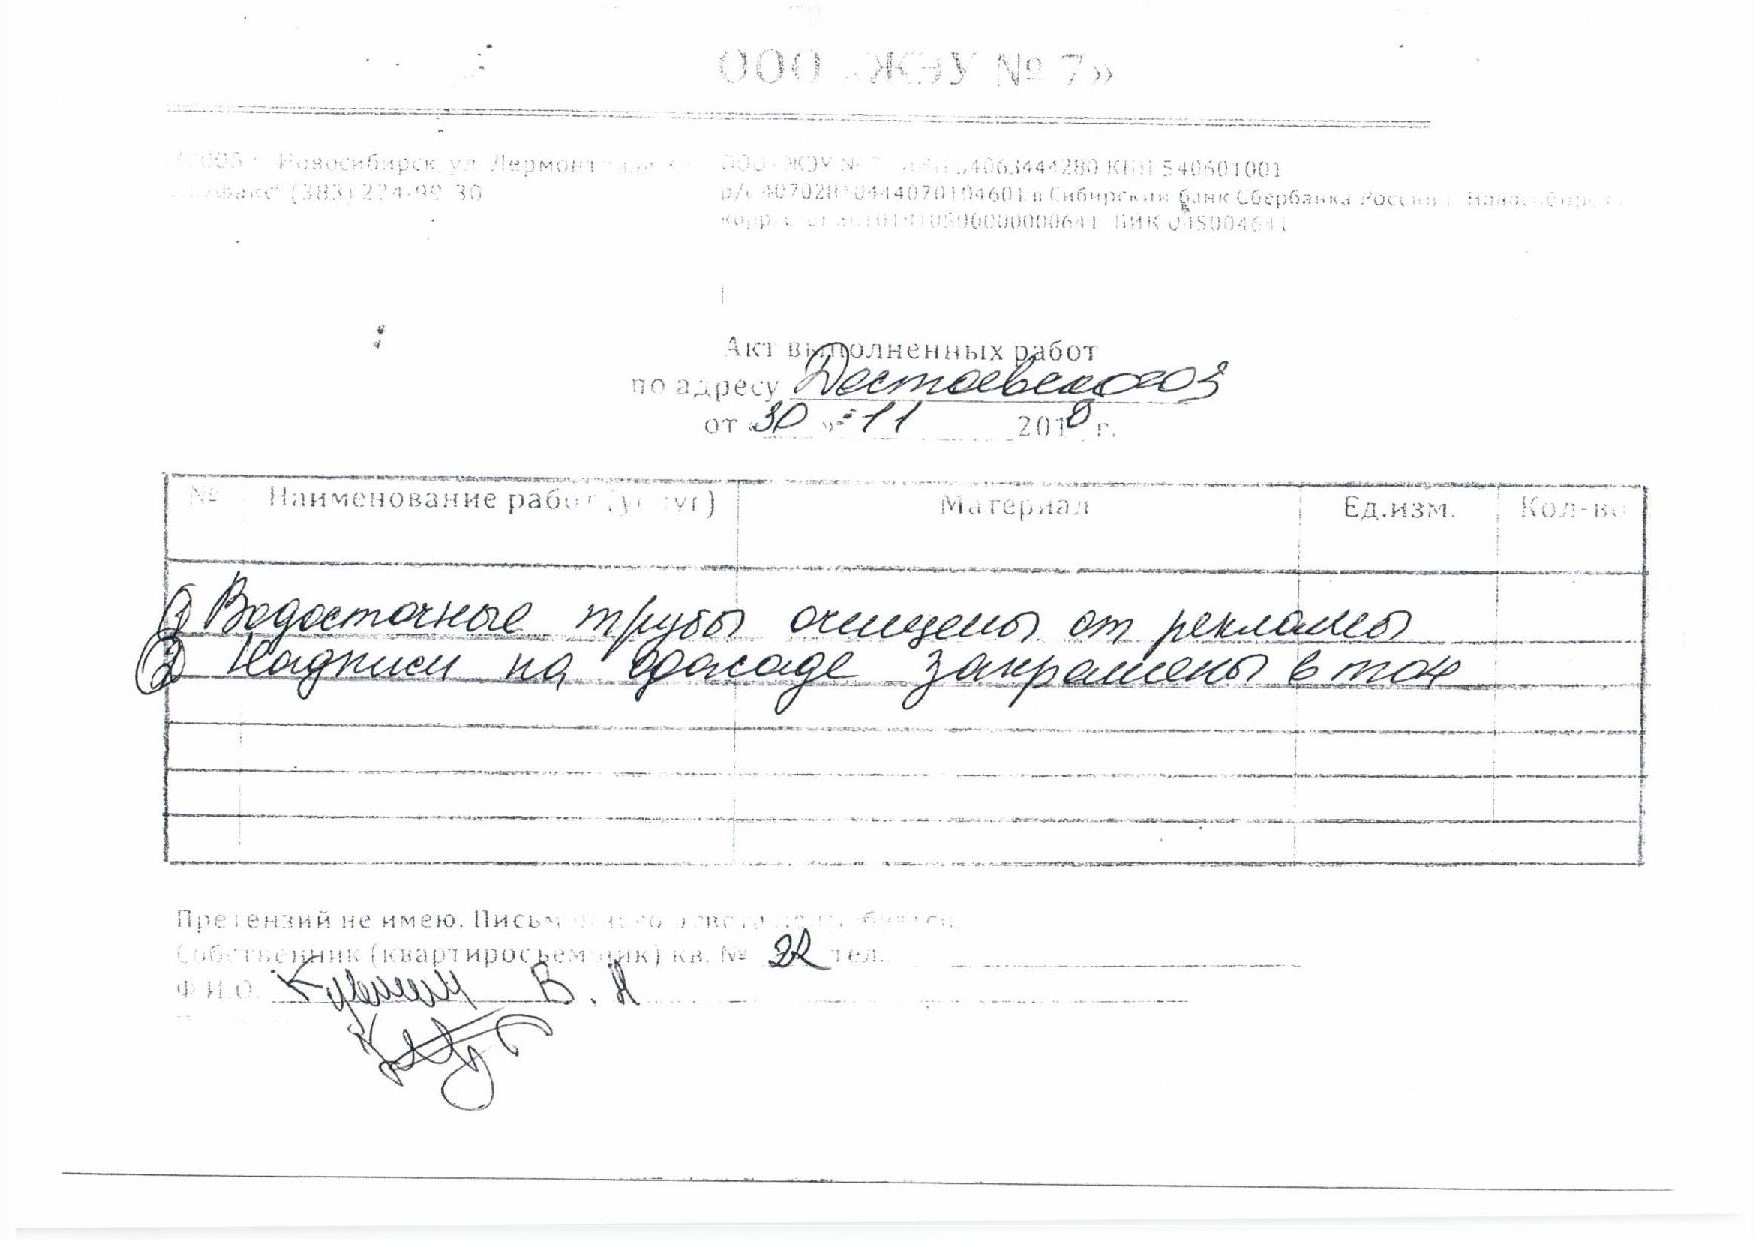 ООО «ЖЭУ № 7»
Новосибирск, ул. Лермонтова
факс (383) 224-99-30
ООО ЖЭУ № 5406344280 КПП 540601001
р/с 40702810444070104601 в Сибирский банк Сбербанка России г. Новосибирск
БИК 045004641
Акт выполненных работ
по адресу Достоевского 3
от «30 » 11 2018 г.
№ Наименование работ (услуг) Материал Ед.изм. Кол-во
1 Водосточные трубы очищены от рекламы
2 Надписи на фасаде закрашены в тон
Претензий не имею. Письменного ответа не требуется.
Собственник (квартиросъемщик) кв. № 22 тел.
Ф.И.О. В.